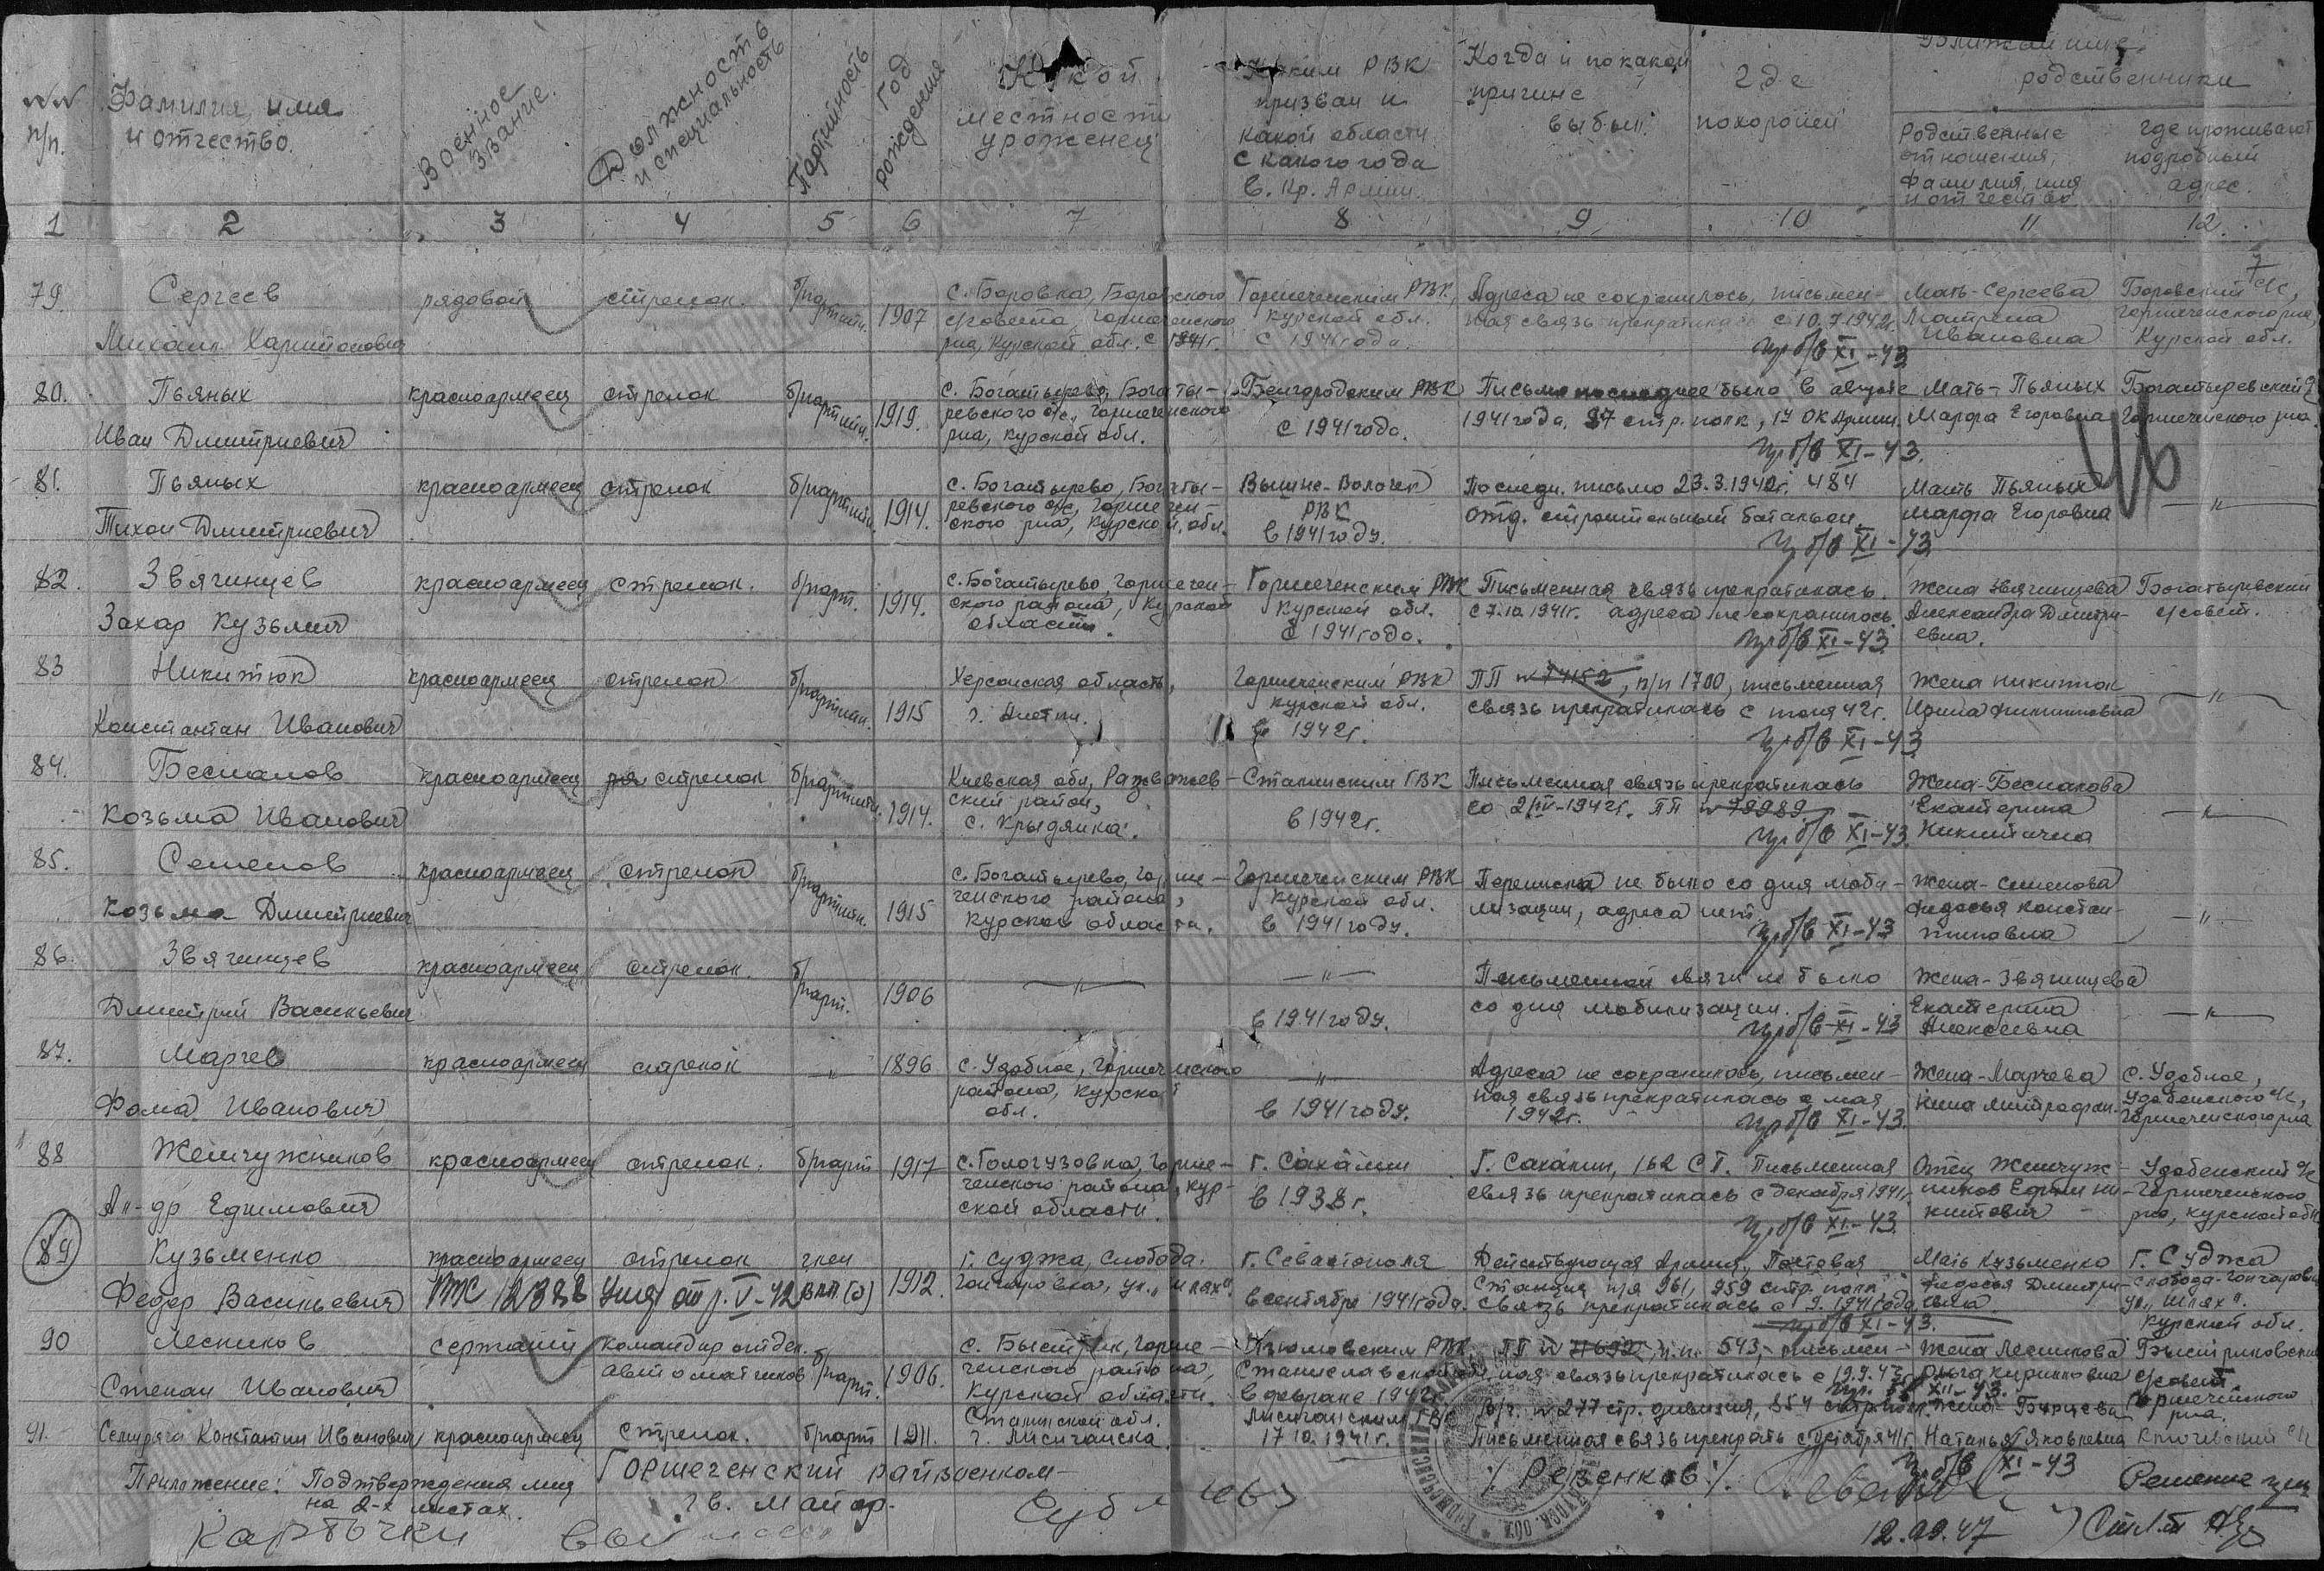 NN п/п.
Фамилия, имя и отчество.
Военное звание.
Должность и специальность
Партийность
Год рождения
Какой местности уроженец
Каким РВК призван и какой области с какого года в. Кр. Армии.
Когда и по какой причине выбыл.
Где похоронен
Ближайшие родственники
Родственные отношения, фамилия, имя и отчество
Где проживают подробный адрес.
1 2 3 4 5 6 7 8 9 10 11 12.
79. Сергеев Михаил Харитонович
рядовой стрелок. б/партийн. 1907
с. Боровка, Боровского с/совета, Горшеченского р-на, Курской обл. с 1941г.
Горшеченским РВК, Курской обл. с 1941 года.
Адреса не сохранилось, письменная связь прекратилась с 10.7.1942г.
пр б/в XI-43
Мать-Сергеева Матрена Ивановна
Боровский с/с, Горшеченского р-на, Курской обл.
80. Пьяных Иван Дмитриевич
красноармеец стрелок б/партийн. 1919.
с. Богатырево, Богатыревского с/с, Горшеченского р-на, Курской обл.
Белгородским РВК с 1941 года.
Письмо последнее было в августе 1941 года, 37 стр. полк, 17 ОК Армии.
пр б/в XI-43.
Мать-Пьяных Марфа Егоровна
Богатыревский Горшеченского р-на
81. Пьяных Тихон Дмитриевич
красноармеец стрелок б/партийн. 1914.
с. Богатырево, Богатыревского с/с, Горшеченского р-на, Курской обл.
Вышне-Волочек РВК в 1941 году.
Последн. письмо 23.3.1942г. 484 отд. строительный батальон.
пр б/в XI-43
Мать Пьяных Марфа Егоровна
— " —
82. Звягинцев Захар Кузьмич
красноармеец стрелок. б/парт. 1914.
с. Богатырево, Горшеченского района, Курской области.
Горшеченским РВК Курской обл. с 1941 года.
Письменная связь прекратилась. с 7.10.1941г. адреса не сохранилось.
пр б/в XI-43
Жена Звягинцева Александра Дмитриевна.
Богатыревский с/совет.
83 Никитюк Константан Иванович
красноармеец стрелок б/партийн. 1915
Херсонская область,
Горшеченским РВК Курской обл. в 1942г.
ПП N 74152, п/п 1700, письменная связь прекратилась с июня 42г.
пр б/в XI-43
Жена Никитюк
— " —
84. Беспалов Козьма Иванович
красноармеец стрелок б/партийн. 1914.
Киевская обл, Разважевский район, с. Крыдянка.
Сталинским ГВК в 1942г.
Письменная связь прекратилась со 2/IV-1942г. ПП N 79989
пр б/в XI-43.
Жена-Беспалова Екатерина Никитична
— " —
85. Семенов Козьма Дмитриевич
красноармеец стрелок б/партийн. 1915
с. Богатырево, Горшеченского района, Курской области.
Горшеченским РВК Курской обл. в 1941 году.
Переписки не было со дня мобилизации, адреса нет.
пр б/в XI-43
Жена-Семенова Федосья Константиновна
— " —
86. Звягинцев Дмитрий Васильевич
красноармеец стрелок. б/парт. 1906
— " —
— " — в 1941 году.
Письменной связи не было со дня мобилизации.
пр б/в XI-43
Жена-Звягинцева Екатерина Алексеевна
— " —
87. Марчев Фома Иванович
красноармеец стрелок — " — 1896
с. Удобное, Горшеченского района, Курской обл.
— " — в 1941 году.
Адреса не сохранилось, письменная связь прекратилась с мая 1942г.
пр б/в XI-43.
Жена-Марчева Нина Митрофан-
с. Удобное, Удобенского с/с, Горшеченского р-на
88 Жемчужников Ал-др Ефимович
красноармеец стрелок. б/парт 1917
с. Гологузовка, Горшеченского района, Курской области.
г. Сахалин в 1938г.
г. Сахалин, 162 СП. Письменная связь прекратилась с декабря 1941г.
пр б/в XI-43
Отец Жемчужников Ефим Никитович
Удобенский с/с Горшеченского р-на, Курской обл
89 Кузьменко Федор Васильевич
красноармеец стрелок член ВКП(б) 1912.
г. Суджа, слобода Гончаровка, ул. "Шлях"
г. Севастополя в сентябре 1941 года.
Действующая Армия, Почтовая станция п/я 961, 959 стр. полк связь прекратилась с 9.1941 года
пр б/в XI-43.
Мать Кузьменко Федосья Дмитриевна
г. Суджа слобода-Гончаровка ул. "Шлях". Курской обл.
90 Лесников Степан Иванович
сержант командир отдел. автоматчиков б/парт. 1906.
с. Быстрик, Горшеченского района, Курской области.
Изюмовским РВК Станиславской в феврале 1942г.
ПП N 71692, п.п. 543, письменная связь прекратилась с 19.9.43г.
Жена Лесникова Ольга Кириловна
Быстриковский с/совет Горшеченского р-на.
91. Семиряга Константин Иванович
красноармеец стрелок. б/парт 1911.
Сталинской обл. г. Лисичанска
Лисичанским ГВК 17.10.1941г.
277 стр. дивизия, 854 стр. полк. Письменная связь прекрать с октября 41г.
пр б/в XI-43
Наталья Яковлевна
Ключевский с/с
Приложение: Подтверждения лиц на 2-х листах.
Горшеченский райвоенком-
гв. майор.
/Ревенков/.
Карточки
12.09.47